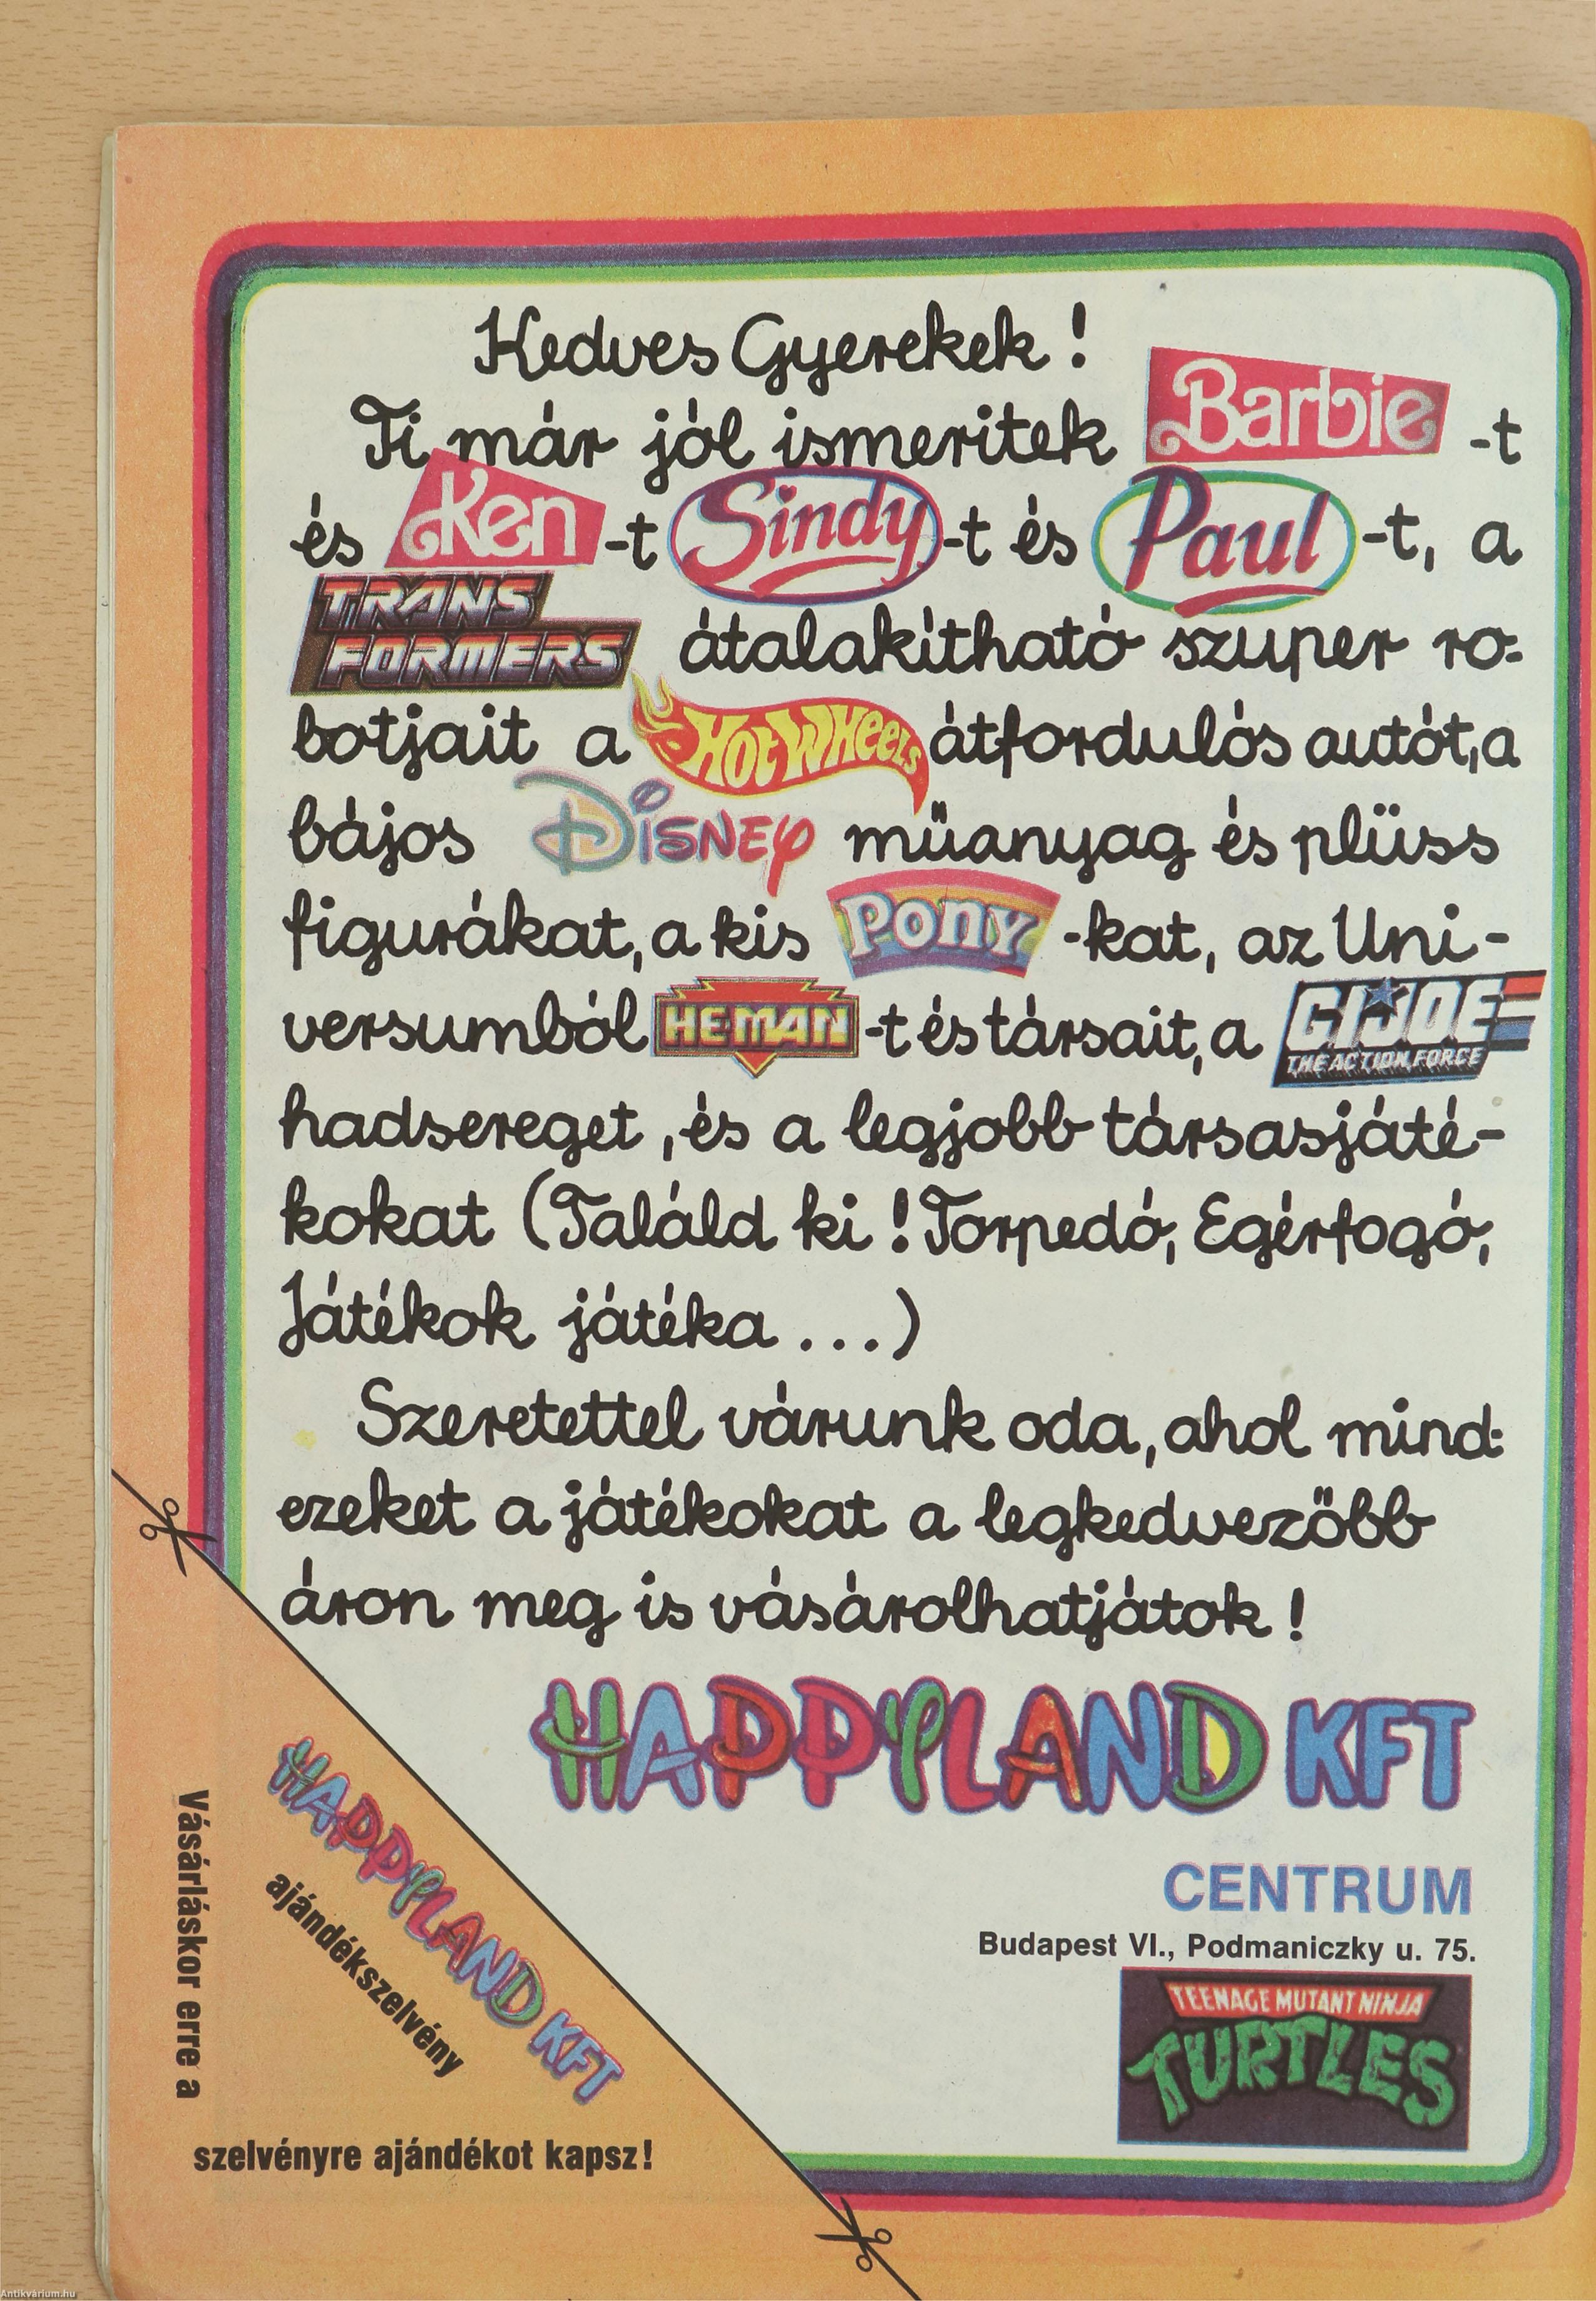 Kedves Gyerekek!
Ti már jól ismeritek Barbie -t
és Ken -t Sindy -t és Paul -t, a
TRANSFORMERS átalakítható szuper ro-
botjait a HOT WHEELS átfordulós autót, a
bájos DISNEY műanyag és plüss
figurákat, a kis PONY -kat, az Uni-
versumból HEMAN -t és társait, a GI JOE THE ACTION FORCE
hadsereget, és a legjobb társasjáté-
kokat (Találd ki! Torpedó, Egérfogó,
Játékok játéka ...)
Szeretettel várunk oda, ahol mind-
ezeket a játékokat a legkedvezőbb
áron meg is vásárolhatjátok!
HAPPYLAND KFT
CENTRUM
Budapest VI., Podmaniczky u. 75.
TEENAGE MUTANT NINJA
TURTLES
HAPPYLAND KFT
ajándékszelvény
Vásárláskor erre a
szelvényre ajándékot kapsz!
Antikvarium.hu